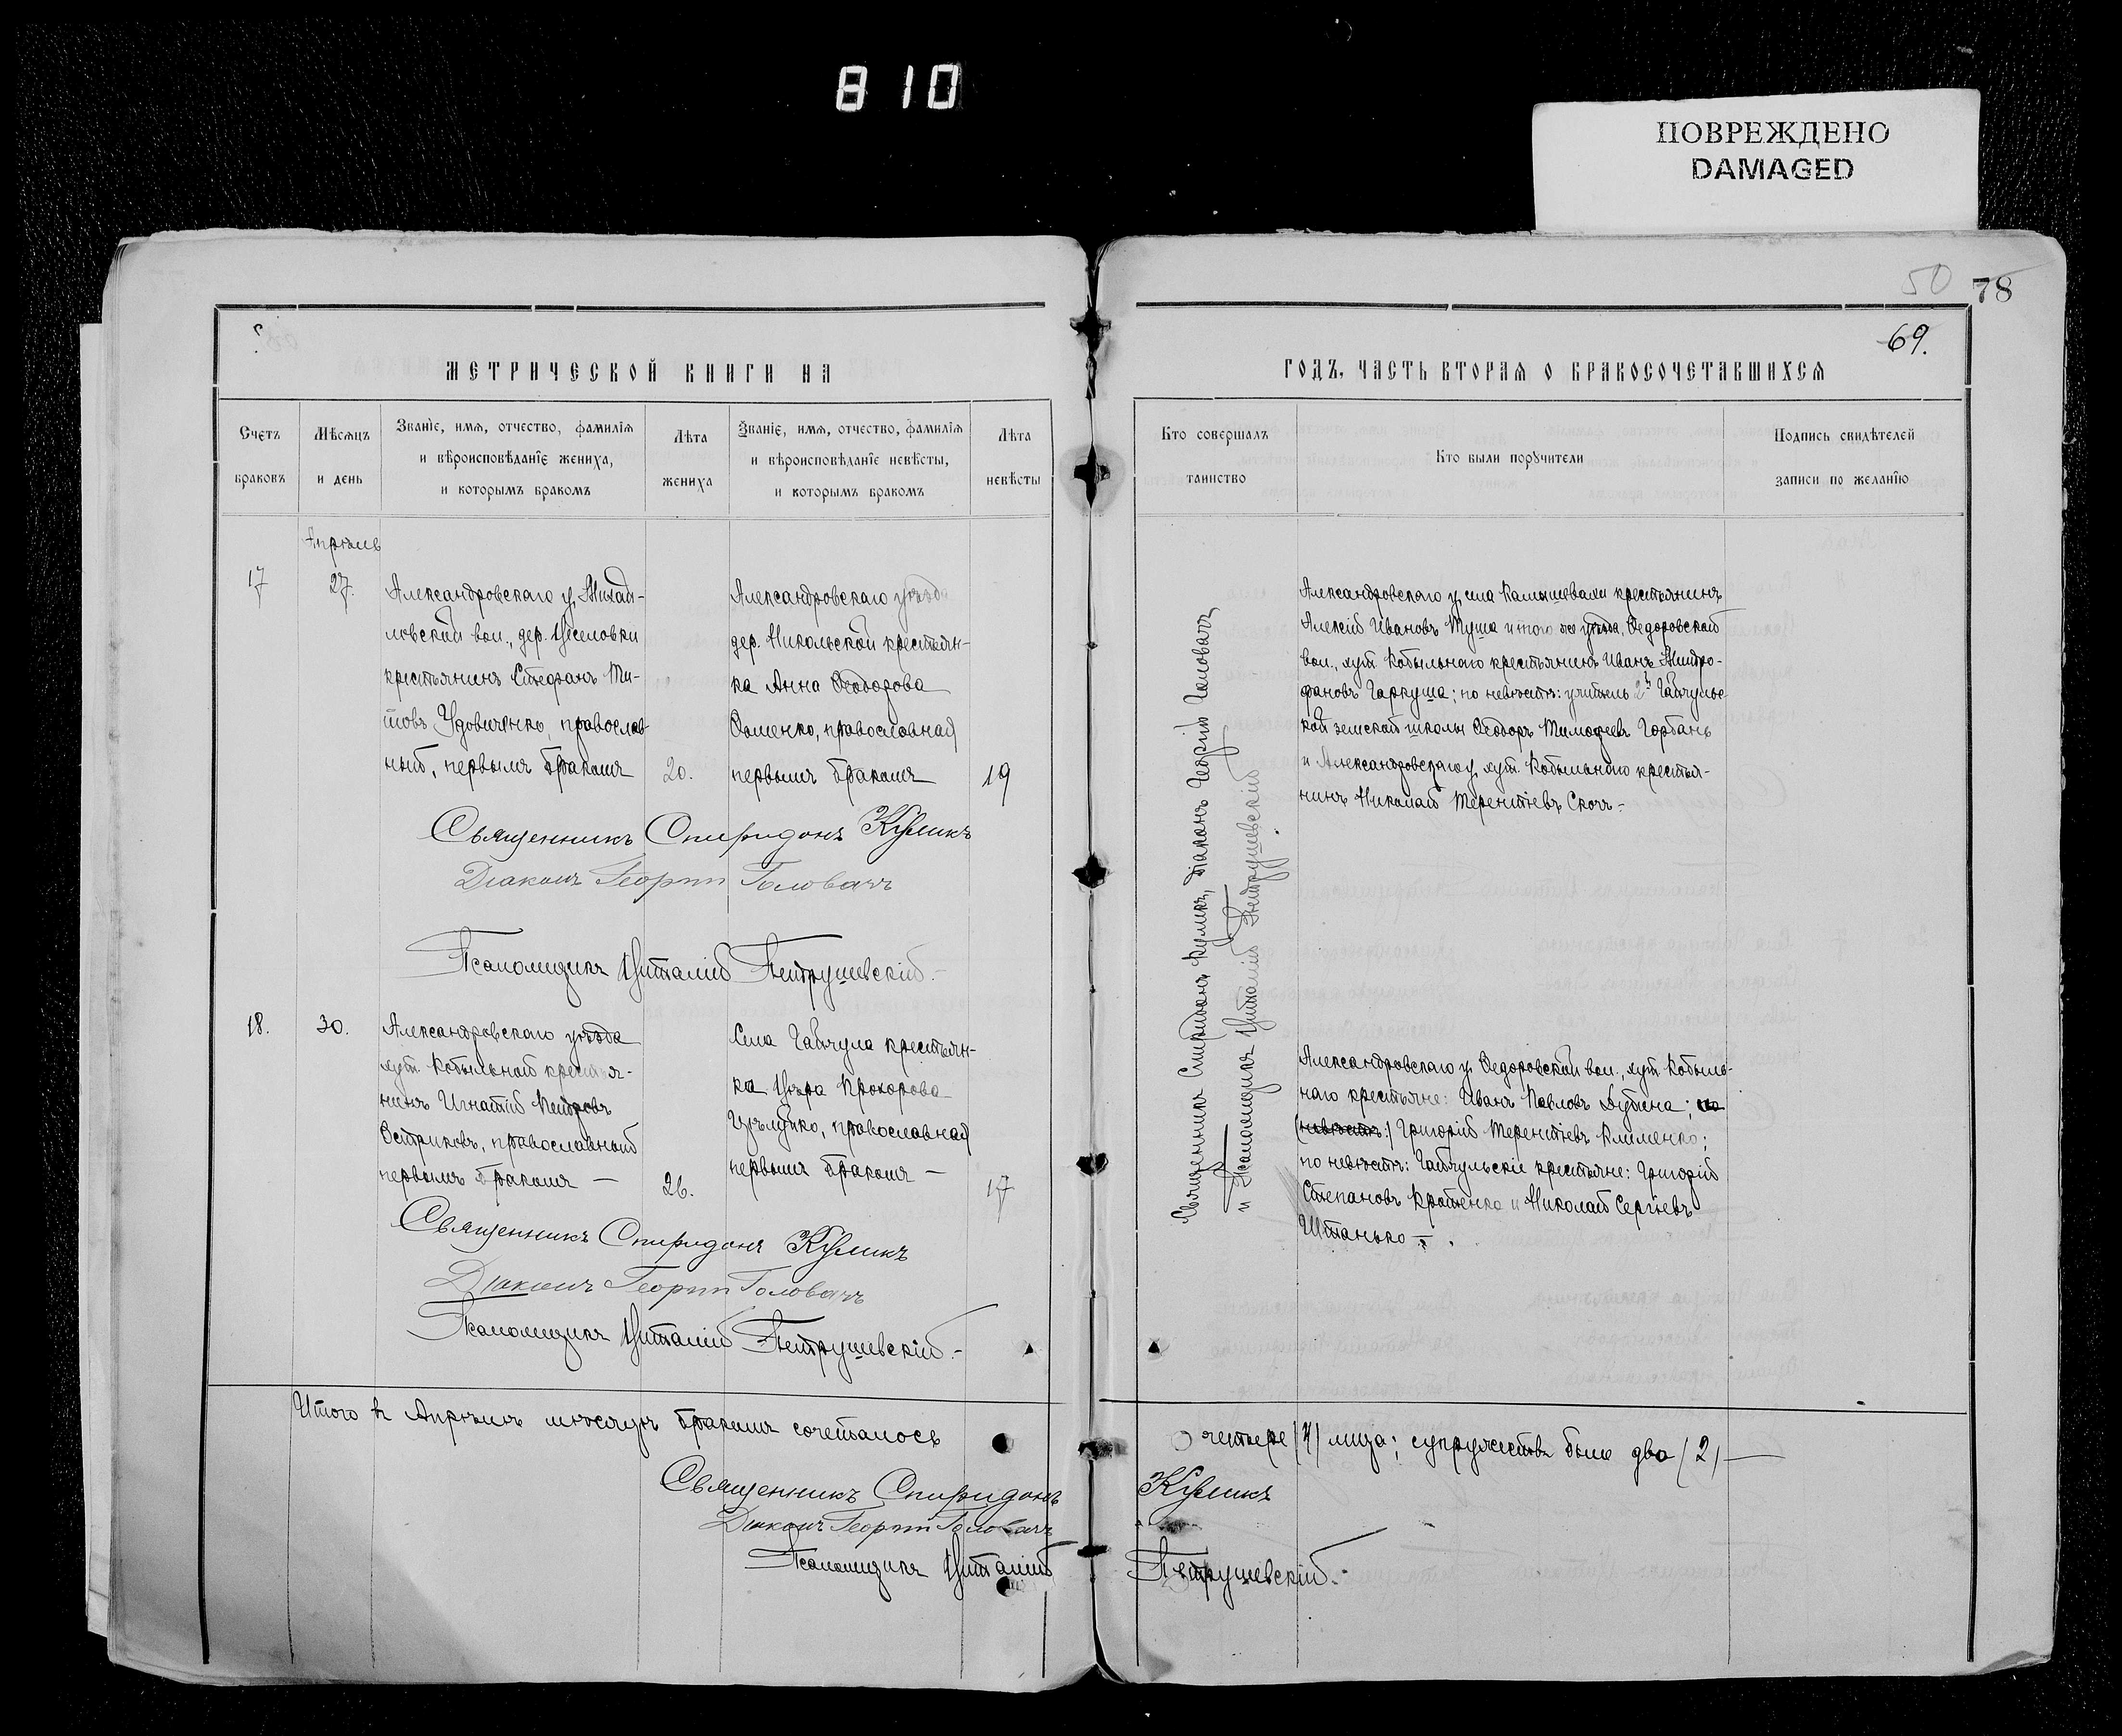 810
ПОВРЕЖДЕНО
DAMAGED
50
78
69.
МЕТРИЧЕСКОЙ КНИГИ НА
Счетъ браковъ
Мѣсяцъ и день
Званіе, имя, отчество, фамилія
и вѣроисповѣданіе жениха,
и которымъ бракомъ
Лѣта жениха
Званіе, имя, отчество, фамилія
и вѣроисповѣданіе невѣсты,
и которымъ бракомъ
Лѣта невѣсты
Апрѣль
17
27.
Александровскаго у, Михай-
ловской вол., дер. Веселовки
крестьянинъ Стефанъ Ти-
товъ Удовиченко, православ-
ный, первымъ бракомъ
20.
Александровскаго уѣзда
дер. Никольской крестьян-
ка Анна Ѳеодорова
православная
первымъ бракомъ
19
Священникъ Спиридонъ Куликъ
Діаконъ Георгій Головачъ
Псаломщикъ Виталій Петрушевскій.-
18.
30.
Александровскаго уѣзда
хут. Кобыльнаго крестья-
нинъ Игнатій Петровъ
Остриковъ, православный
первымъ бракомъ —
26.
Села Гайчула крестьян-
ка Вѣра Прохорова
православная
первымъ бракомъ —
17
Священникъ Спиридонъ Куликъ
Діаконъ Георгій Головачъ
Псаломщикъ Виталій Петрушевскій.-
Итого въ Апрѣлѣ мѣсяцѣ бракомъ сочеталось
Священникъ Спиридонъ
Діаконъ Георгій Головачъ
Псаломщикъ Виталій
ГОДЪ, ЧАСТЬ ВТОРАЯ О БРАКОСОЧЕТАВШИХСЯ
Кто совершалъ таинство
Кто были поручители
Подпись свидѣтелей
записи по желанію
Священникъ Спиридонъ Куликъ, Діаконъ Георгій Головачъ
и Псаломщикъ Виталій Петрушевскій
Александровскаго у, села Камышевахи крестьянинъ
Алексій Ивановъ Туша и того же уѣзда, Ѳедоровской
вол., хут. Кобыльнаго крестьянинъ Иванъ Митро-
фановъ Гаркуша; по невѣстѣ: учитель 2й Гайчуль-
кой земской школы Ѳеодоръ Тимофеевъ Горбань
и Александровскаго у, хут. Кобыльнаго крестья-
нинъ Николай Терентіевъ Скочъ.-
Александровскаго у, Ѳедоровской вол., хут Кобыль-
наго крестьяне: Иванъ Павловъ Дубина; по
(невѣстѣ:) Григорій Терентіевъ Клименко;
по невѣстѣ: Гайчульскіе крестьяне: Григорій
Степановъ Кротенко и Николай Сергѣевъ
Штанько —.
четыре (4) лица; супружествъ было два (2) —
Куликъ
Петрушевскій.-